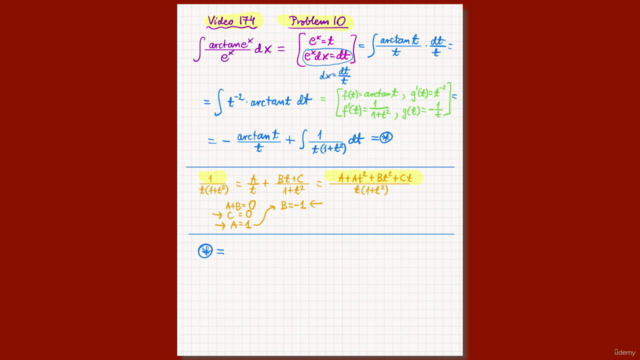 Video 174 Problem 10
∫ arctan e^x / e^x dx = [ e^x = t ; e^x dx = dt ] = ∫ arctan t / t · dt / t =
dx = dt / t
= ∫ t^-2 · arctan t dt = [ f(t) = arctan t , g'(t) = t^-2 ; f'(t) = 1 / 1+t² , g(t) = -1 / t ] =
= - arctan t / t + ∫ 1 / t(1+t²) dt = ⊛
1 / t(1+t²) = A / t + Bt+C / 1+t² = A+At²+Bt²+Ct / t(1+t²)
A+B=0 B=-1 ←
→ C=0
→ A=1
⊛ =
ûdemy